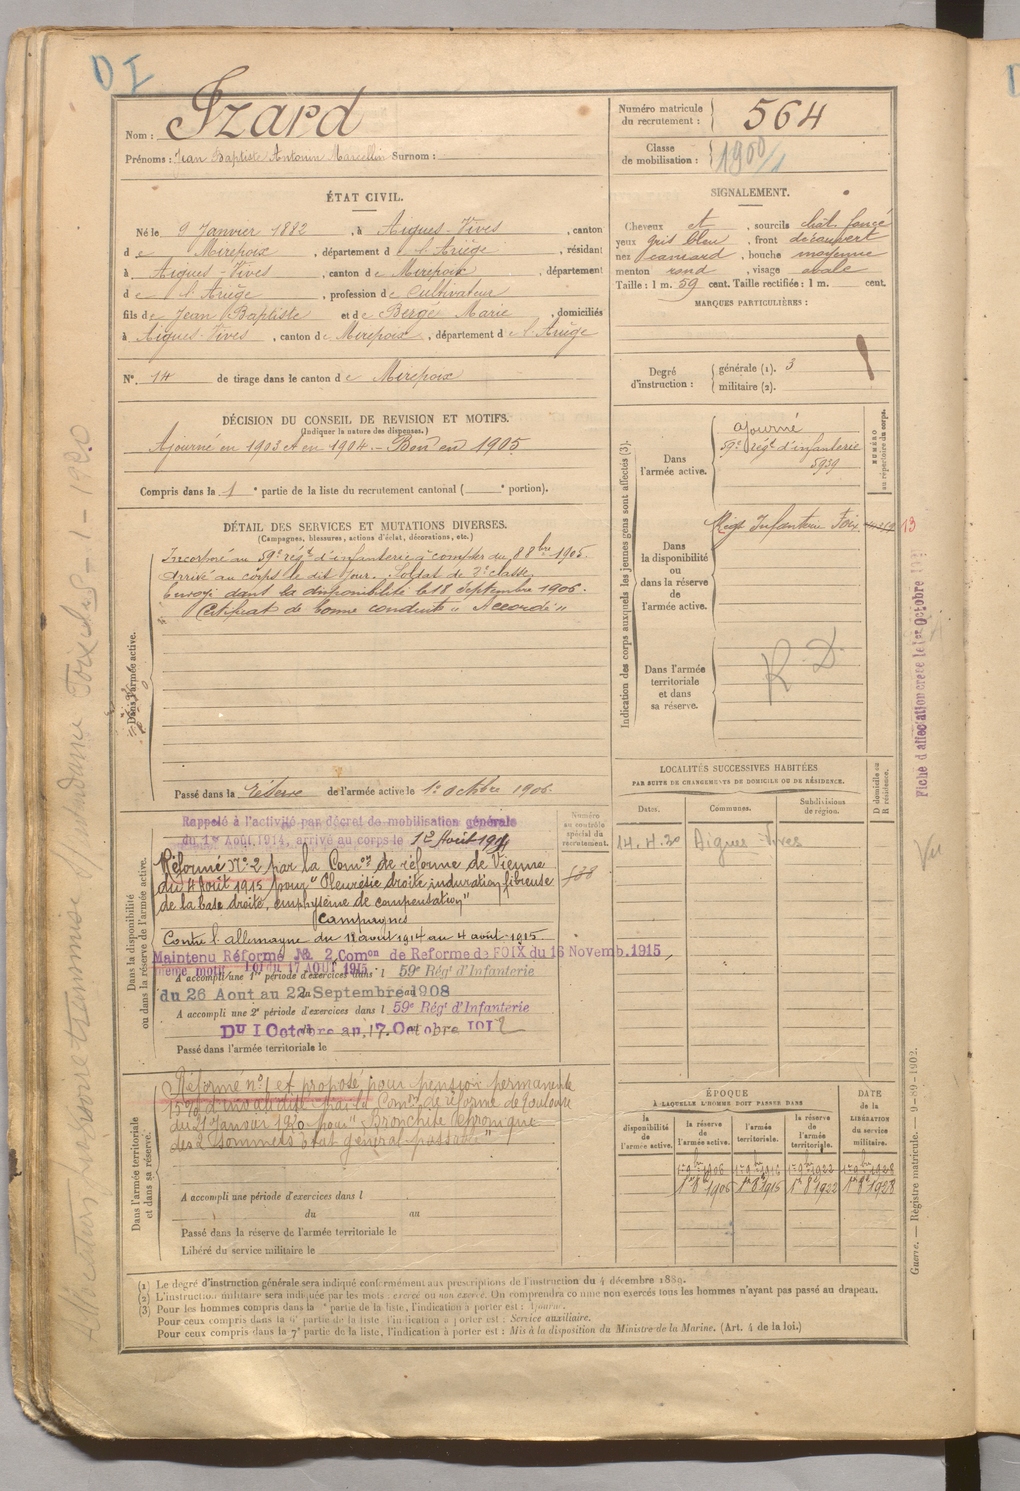 DI
Nom : Izard
Prénoms : Jean Baptiste Antonin Marcellin Surnom :
Numéro matricule du recrutement : 564
Classe de mobilisation : 1900/1
ÉTAT CIVIL.
Né le 9 Janvier 1882, à Aigues-Vives, canton
de Mirepoix, département d l'Ariège, résidant
à Aigues-Vives, canton de Mirepoix, département
de l'Ariège, profession de Cultivateur
fils de Jean Baptiste et de Berge Marie, domiciliés
à Aigues-Vives, canton de Mirepoix, département d l'Ariège
N° 14 de tirage dans le canton de Mirepoix
SIGNALEMENT.
Cheveux et, sourcils chât. foncé
yeux gris bleu, front découvert
nez camard, bouche moyenne
menton rond, visage ovale
Taille : 1 m. 59 cent. Taille rectifiée : 1 m. cent.
MARQUES PARTICULIÈRES :
Degré d'instruction : générale (1). 3
militaire (2).
DÉCISION DU CONSEIL DE REVISION ET MOTIFS.
(Indiquer la nature des dispenses.)
Ajourné en 1903 et en 1904 - Bon en 1905
Compris dans la 1e partie de la liste du recrutement cantonal ( e portion).
DÉTAIL DES SERVICES ET MUTATIONS DIVERSES.
(Campagnes, blessures, actions d'éclat, décorations, etc.)
Dans l'armée active.
Incorporé au 59e régt d'infanterie à compter du 8 8bre 1905.
Arrivé au corps le dit jour. Soldat de 2e classe.
Envoyé dans la disponibilité le 18 Septembre 1906.
Certificat de bonne conduite "Accordé"
Passé dans la réserve de l'armée active le 1er octobre 1906.
Indication des corps auxquels les jeunes gens sont affectés (3).
NUMÉRO au répertoire du corps.
Dans l'armée active.
ajourné
59e régt d'infanterie
5939
Dans la disponibilité ou dans la réserve de l'armée active.
Régt Infanterie Foix
13
Dans l'armée territoriale et dans sa réserve.
R.D.
Dans la disponibilité ou dans la réserve de l'armée active.
Rappelé à l'activité par décret de mobilisation générale
du 1er Août 1914, arrivé au corps le 12 Août 1914
Réformé N° 2 par la Comon de réforme de Vienne
du 4 Août 1915 pour "Pleurésie droite, induration fibreuse
de la base droite, emphysème de compensation"
Campagnes
Contre l'allemagne du 12 août 1914 au 4 août 1915
Maintenu Réformé № 2, Comon de Reforme de FOIX du 16 Novemb. 1915
même motif. Loi du 17 AOUT 1915
A accompli une 1re période d'exercices dans l 59e Régt d'Infanterie
du 26 Aout au 22 Septembre 1908
A accompli une 2e période d'exercices dans l 59e Régt d'Infanterie
Du 1 Octobre au 17 Octobre 1912
Passé dans l'armée territoriale le
Numéro au contrôle spécial du recrutement.
Dans l'armée territoriale et dans sa réserve.
Réformé n° 1 et proposé pour pension permanente
15 % d'invalidité par la Comon de réforme de Toulouse
du 21 Janvier 1920 pour "Bronchite chronique
des 2 sommets état général passable"
A accompli une période d'exercices dans l
du au
Passé dans la réserve de l'armée territoriale le
Libéré du service militaire le
LOCALITÉS SUCCESSIVES HABITÉES
PAR SUITE DE CHANGEMENTS DE DOMICILE OU DE RÉSIDENCE.
Dates. Communes. Subdivisions de région. D domicile ou R résidence.
14.4.30 Aigues-Vives
ÉPOQUE
À LAQUELLE L'HOMME DOIT PASSER DANS
DATE de la LIBÉRATION du service militaire.
la disponibilité de l'armée active. la réserve de l'armée active. l'armée territoriale. la réserve de l'armée territoriale.
1er 8e 1906 1er 8e 1915 1er 8e 1922 1er 8e 1928
(1) Le degré d'instruction générale sera indiqué conformément aux prescriptions de l'instruction du 4 décembre 1889.
(2) L'instruction militaire sera indiquée par les mots : exercé ou non exercé. On comprendra comme non exercés tous les hommes n'ayant pas passé au drapeau.
(3) Pour les hommes compris dans la partie de la liste, l'indication à porter est : Ajourné.
Pour ceux compris dans la partie de la liste, l'indication à porter est : Service auxiliaire.
Pour ceux compris dans la 7e partie de la liste, l'indication à porter est : Mis à la disposition du Ministre de la Marine. (Art. 4 de la loi.)
Guerre. — Régistre matricule. — 9-89-1902.
Vu